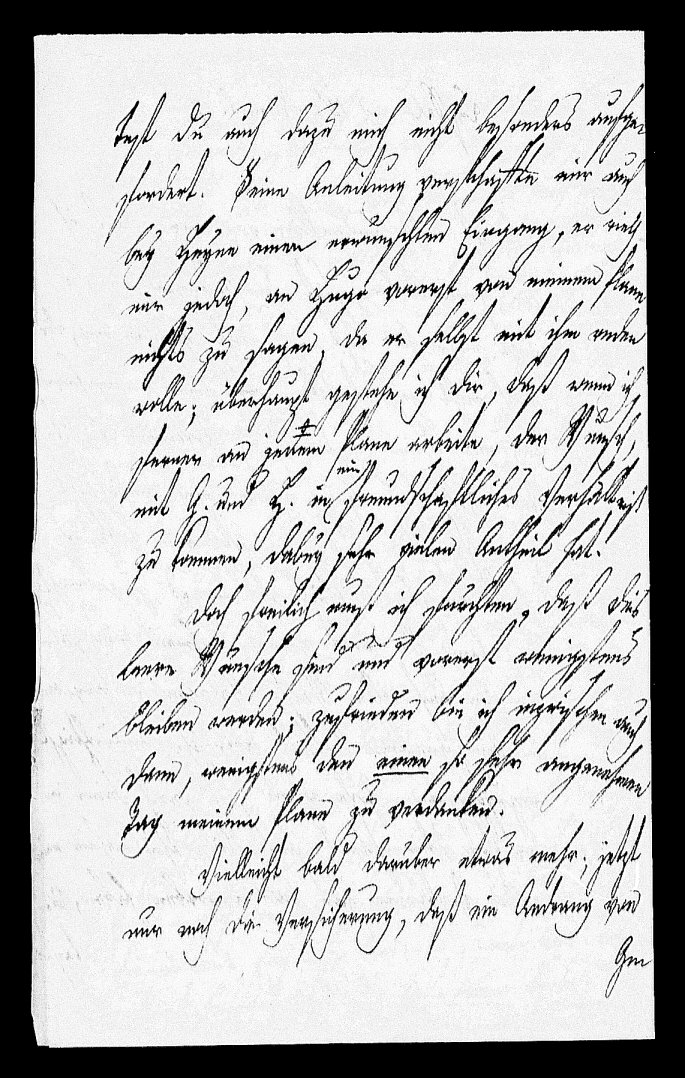 test du auch dazu mich nicht besonders aufge-
fordert. Deine Anleitung verschaffte mir auch
bey Heyne einen erwünschten Eingang, er rieth
mir jedoch, an Hugo vorerst von meinem Plane
nichts zu sagen, da er selbst mit ihm reden
wolle; überhaupt gestehe ich dir, daß wenn ich
ferner an jenem Plane arbeite, der Wunsch,
mit G. und H. in ein freundschaftliches Verhältniß
zu kommen, dabey sehr vielen Antheil hat.
Doch freilich muß ich fürchten, daß dies
leere Wünsche sind und vorerst wenigstens
bleiben werden; zufrieden bin ich inzwischen auch
dann, wenigstens den einen so sehr angenehmen
Tag meinem Plane zu verdanken.
Vielleicht bald darüber etwas mehr; jetzt
nur noch die Versicherung, daß ein Andrang von
Ge